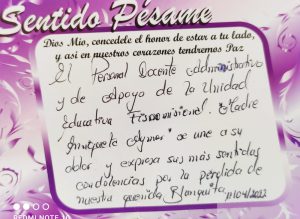 Sentido Pésame
Dios Mío, concedele el honor de estar a tu lado,
y asi en nuestros corazones tendremos Paz
El Personal Docente Administrativo
y de apoyo de la Unidad
Educativa Fiscomisional. Madre
Enriqueta Aymer se une a su
dolor y expresa sus más sentidas
condolencias por la perdida de
nuestra querida Blanquita. 11/04/2023
REDMI NOTE 10